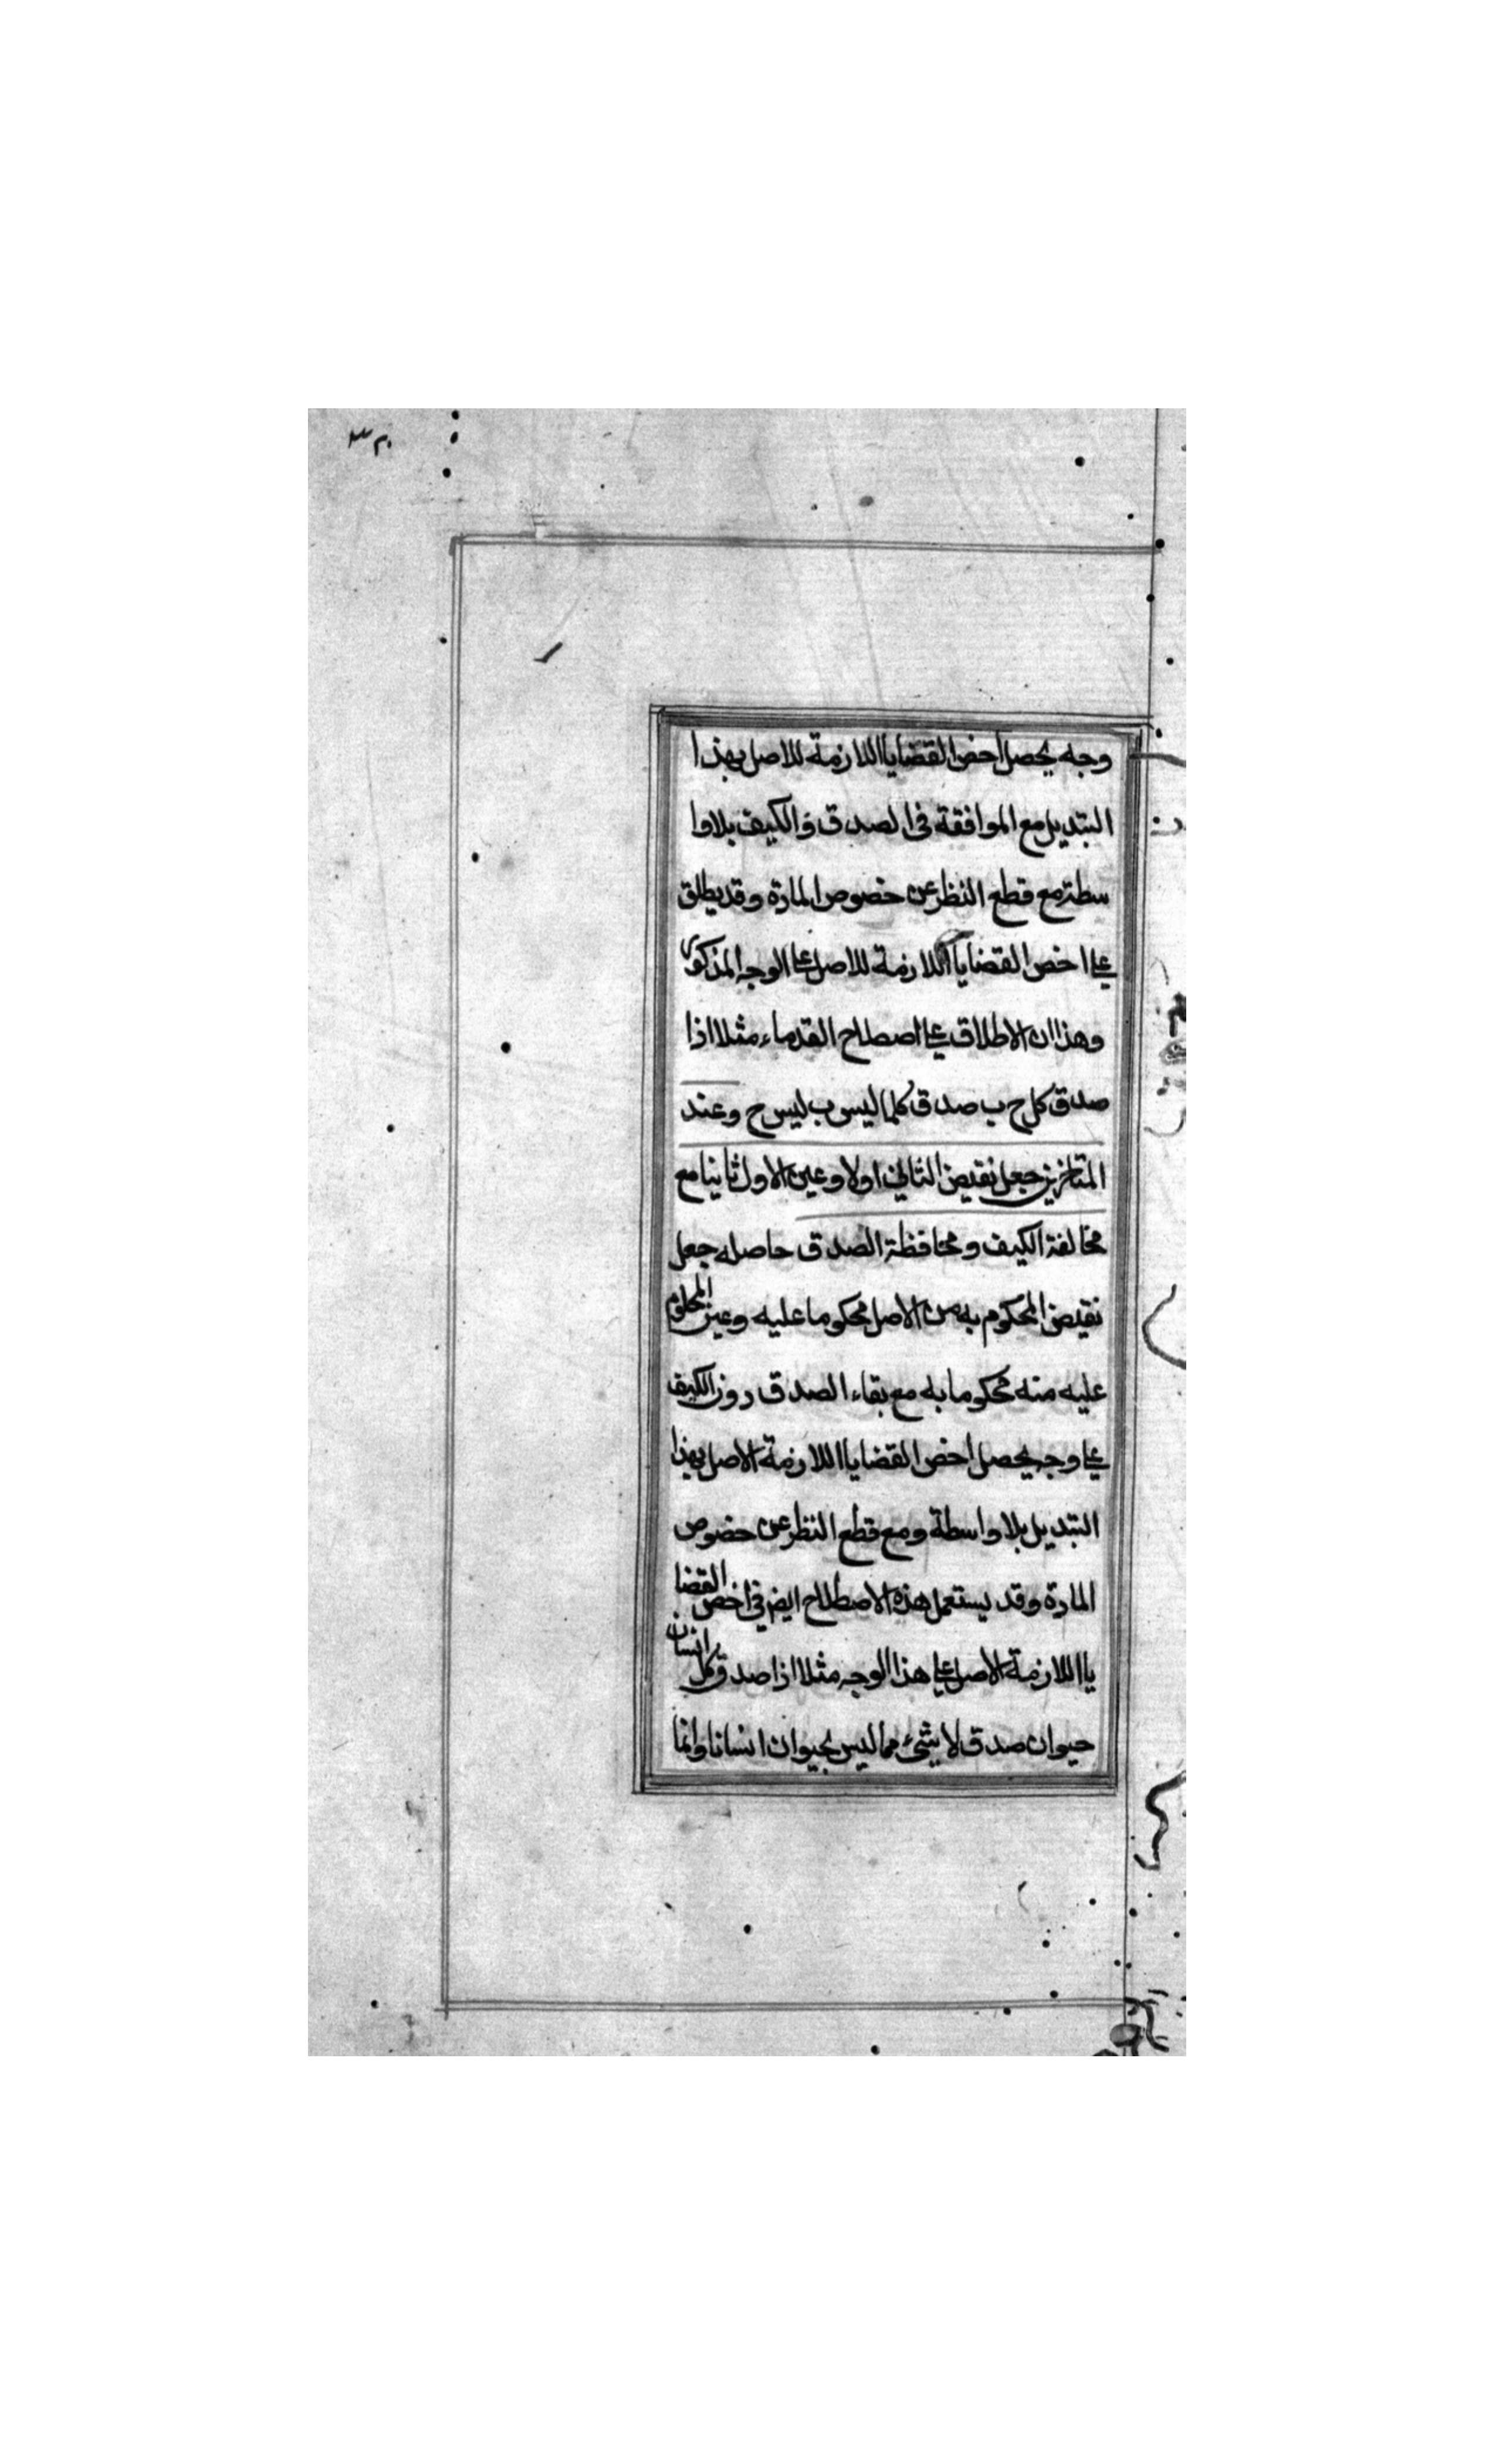 وجه يحصل اخص القضايا اللازمة للاصل بهذا
التبديل مع الموافقة فى الصدق والكيف بلاوا
سطة مع قطع النظر عن خصوص المادة وقد يطلق
على اخص القضايا اللازمة للاصل على الوجه المذكور
وهذا ان الاطلاق على اصطلاح القدماء مثلا اذا
صدق كل ج ب صدق كلما ليس ب ليس ج وعند
المتاخرين جعل نقيض الثاني اولا وعين الاول ثانيا مع
مخالفة الكيف ومحافظة الصدق حاصله جعل
نقيض المحكوم به من الاصل محكوما عليه وعين المحكوم
عليه منه محكوما به مع بقاء الصدق دون الكيف
على وجه يحصل اخص القضايا اللازمة الاصل بهذا
التبديل بلا واسطة ومع قطع النظر عن خصوص
المادة وقد يستعمل هذه الاصطلاح ايضا في اخص القضا
يا اللازمة الاصل على هذا الوجه مثلا اذا صدق كل انسان
حيوان صدق لا شيء مما ليس بحيوان انسانا وانما